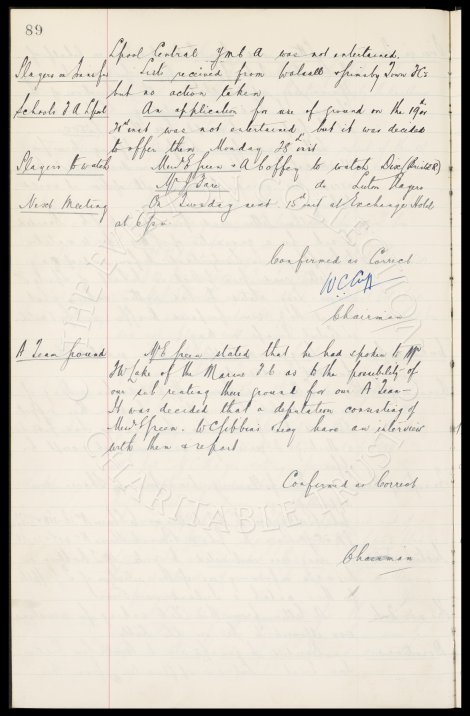 89
Lpool Central Y m C A was not entertained.
Players on Transfer Lists received from Walsall & Grimsby Town FCs
but no action taken
Schools F A Lpool An application for use of ground on the 19th or
21st inst was not entertained but it was decided
to offer them Monday 28th inst
Players to watch Messrs E Green & A Coffey to watch (Bristol R)
Mr do Luton Players
Next Meeting On Tuesday next 15th inst at Exchange Hotel
at 6 pm
Confirmed as Correct
W.C. Cuff
Chairman
A Team ground Mr E Green stated that he had spoken to Mr
of the Marine F C as to the possibility of
our sub renting their ground for our A Team
It was decided that a deputation consisting of
Messrs E Green, W C Gibbins & have an interview
with them & report
Confirmed as Correct
Chairman
THE COLLECTION
CHARITABLE TRUST